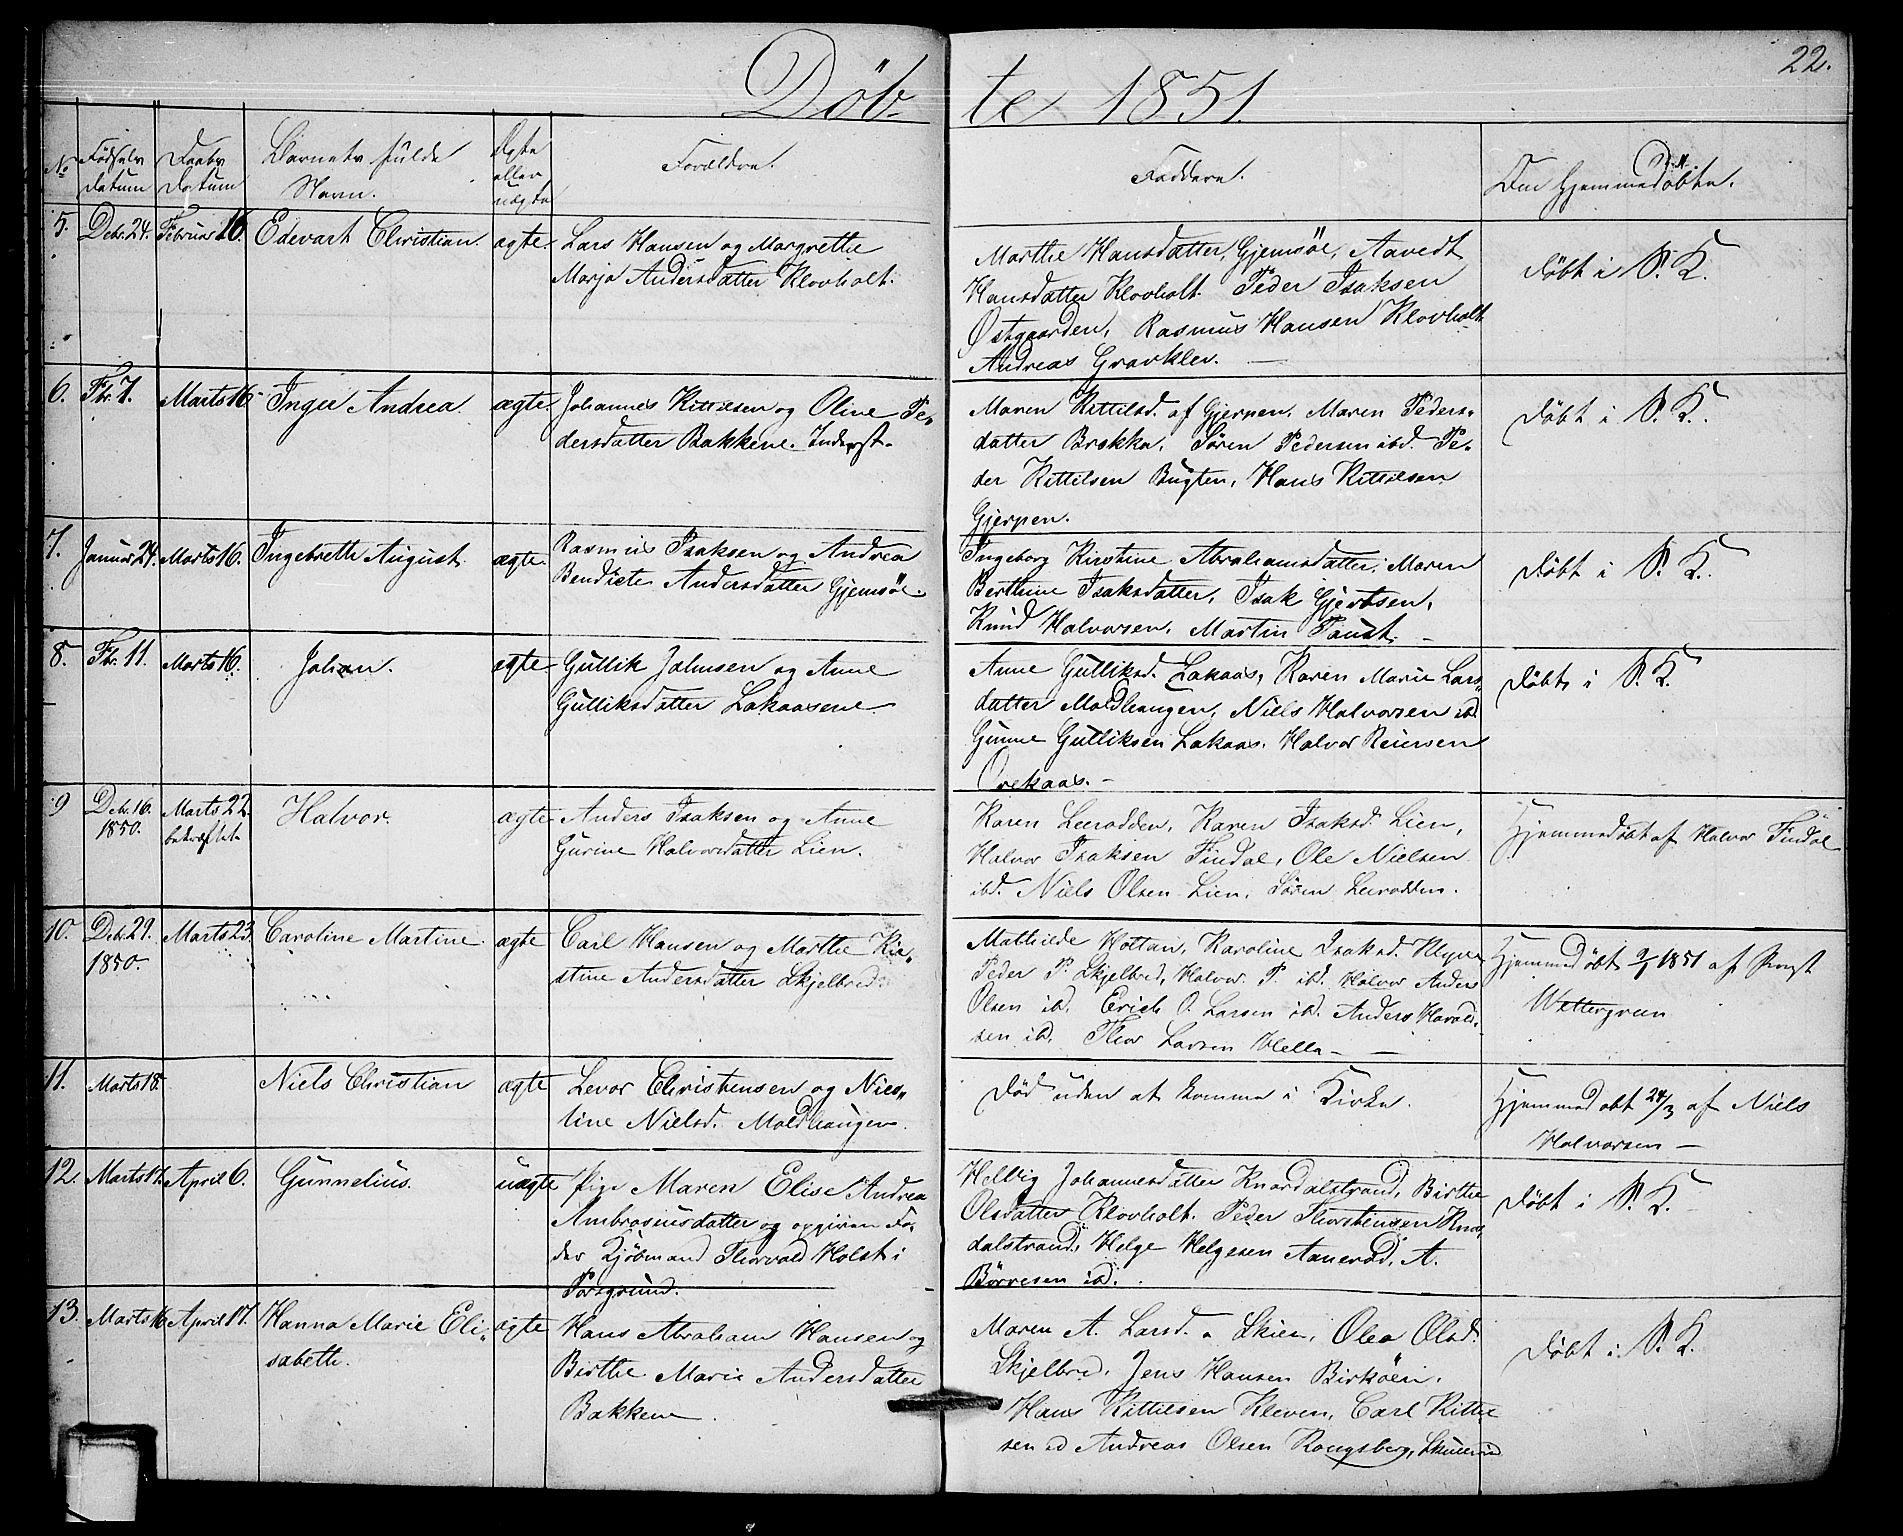 22.
Döb- te 1851.
No Fødsels Datum Daabs Datum Barnets fulde Navn. Ægte eller uægte Forældre. Faddere. Om Hjemmedöbte.
5. Debr. 24. Februar 16. Edevart Christian. ægte
Lars Hansen og Margrethe
Marja Andersdatter Klovholt.
Marthe Hansdatter, Gjemsöe, Aavedt
Hansdatter Klovholt. Peder Isaksen
Östgaarden, Rasmus Hansen Klovholt
Andreas Gravklev. —
Döbt i P. K.
6. Fbr. 7. Marts 16 Inger Andrea. ægte.
Johannes Kittilsen og Oline Pe-
dersdatter Bakkene. Inderst.
Maren Kittilsd. af Gjerpen, Maren Peders-
datter Brekka, Sören Pedersen ibd. Pe-
der Kittilsen Bugten, Hans Kittilsen
Gjerpen.
Döbt i P. K.
7. Januar 24. Marts 16. Ingebreth August. ægte
Rasmus Isaksen og Andrea
Bendicte Andersdatter Gjemsöe.
Ingeborg Kirstine Abrahamsdatter, Maren
Berthine Isaksdatter, Isak Gjertsen,
Knud Halvorsen, Martin Faust. —
Döbt i P. K.
8. Fbr. 11. Marts 16. Johan. ægte
Gullik Johnsen og Anne
Gulliksdatter Lakaasene.
Anne Gulliksd. Lakaas, Karen Marie Lars-
datter Moldhaugen, Niels Halvorsen ibd.
Gunne Gulliksen Lakaas. Halvor Reiersen
Orekaas. —
Döbt i P. K.
9 Debr. 16. 1850. Marts 22. bekræftet Halvor. ægte
Anders Isaksen og Anne
Gurine Halvorsdatter Lien.
Karen Leerodden, Karen Isaksd. Lien,
Halvor Isaksen Findal, Ole Nielsen
ibd. Niels Olsen Lien, Sören Leerodden.
Hjemmedöbt af Halvor Findal
10. Debr. 29. 1850. Marts 23. Caroline Martine. ægte
Carl Hansen og Marthe Kir-
stine Andersdatter Skjelbred.
Mathilde Hottan, Karoline Isaksd.
Peder P. Skjelbred, Halvor P. ibd. Halvor Anders
Olsen ibd. Erich O. Larsen ibd. Anders Harald-
sen ibd. Thor Larsen Hella — —
Hjemmedöbt 9/1 1851 af Præst
Wettergreen
11. Marts 18. Niels Christian ægte
Levor Christensen og Niel-
line Nielsd. Moldhaugen.
Död uden at komme i Kirke.
Hjemmedöbt 24/3 af Niels
Halvorsen —
12. Marts 17. April 6. Gunnelius. uægte
Pige Maren Elise Andrea
Ambrosiusdatter og opgiven Fa-
der Kjöbmand Thorvald Holst i
Porsgrund.
Helvig Johannesdatter Knardalstrand, Birthe
Olsdatter Klovholt. Peder Thorstensen Knar-
dalstrand, Helge Helgesen Aanerød, A.
Börresen ibd.
Döbt i P. K.
13. Marts 16 April 17. Hanna Marie Eli-
sabeth. ægte
Hans Abraham Hansen og
Birthe Marie Andersdatter
Bakken.
Maren A. Larsd. a Skien, Olea Olsd.
Skjelbred, Jens Hansen Birköen.
Hans Kittilsen Kleven, Carl Kittel
sen ibd Andreas Olsen Rongsberg,
Döbt i P. K.